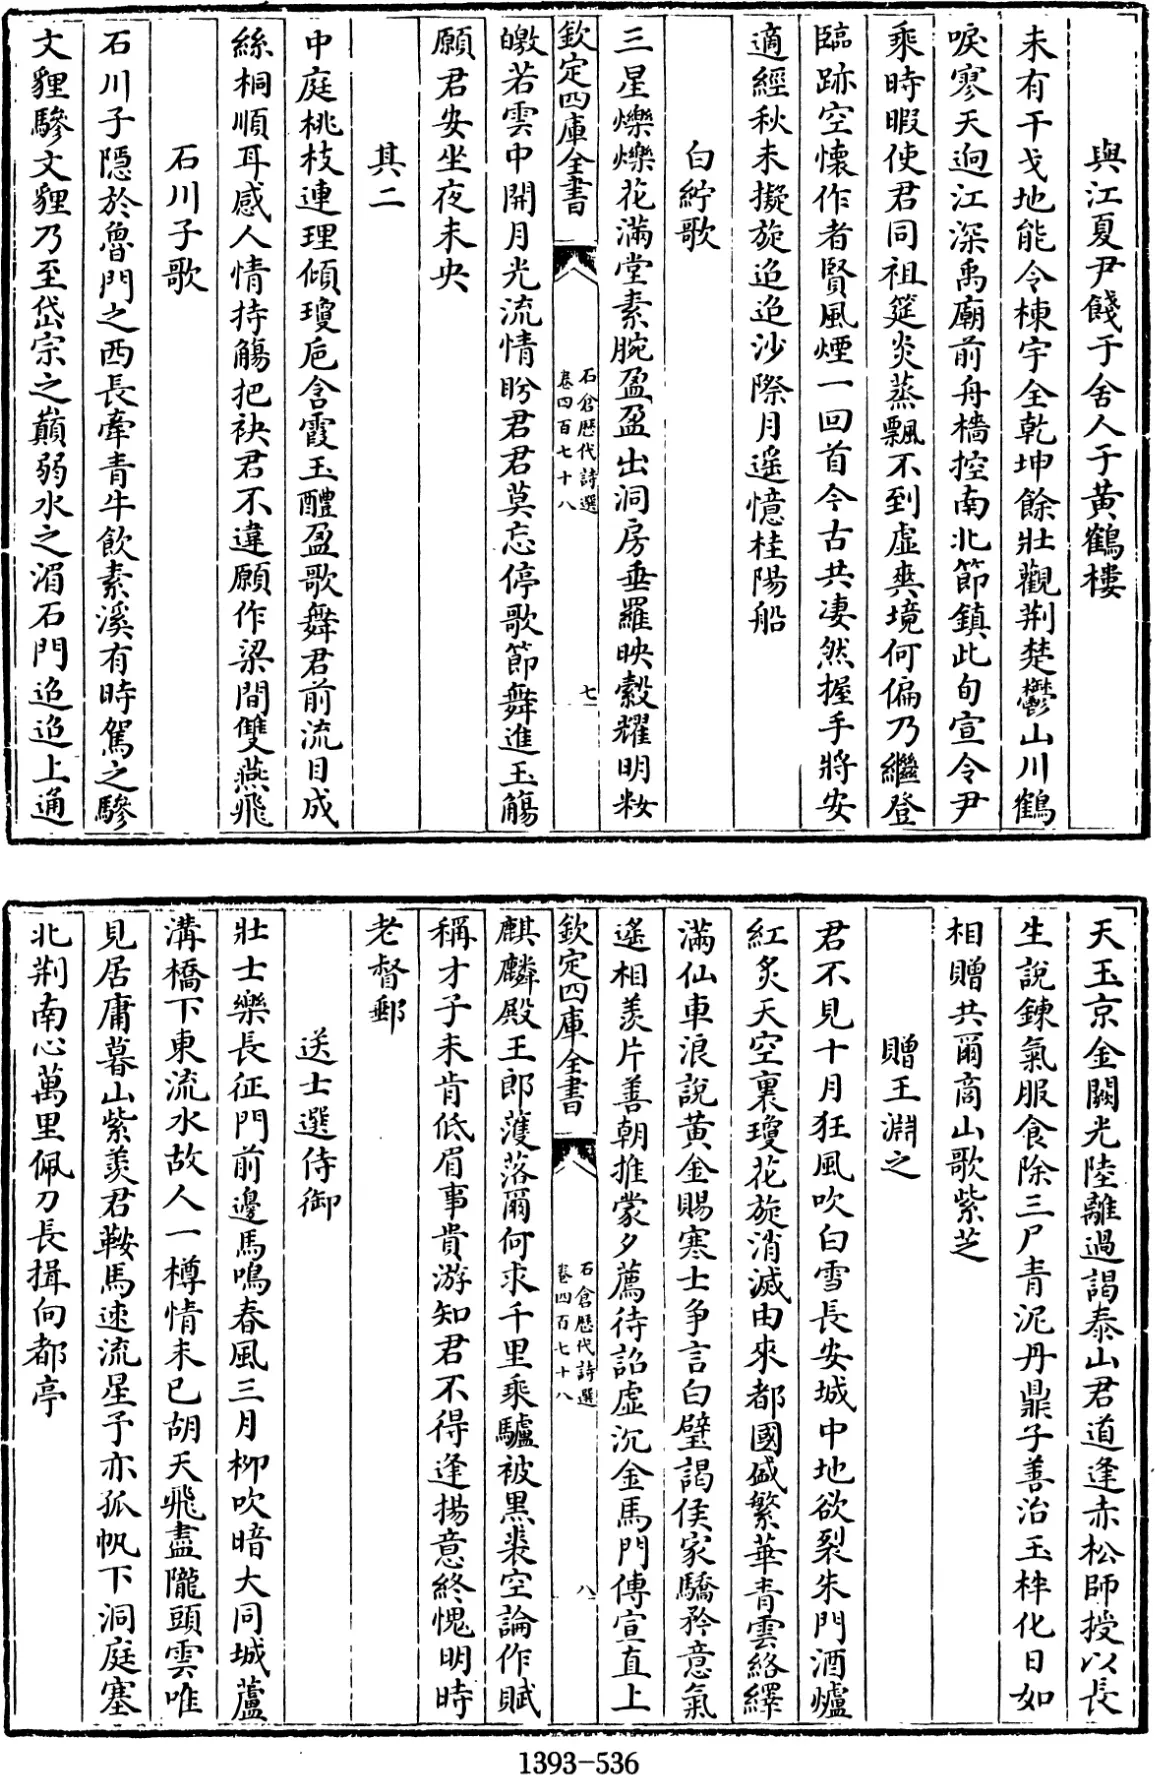 與江夏尹餞于舍人于黃鶴樓
未有干戈地能令棟宇全乾坤餘壯觀荆楚鬱山川鶴
唳寒天迥江深禹廟前舟檣控南北節鎮此旬宣令尹
乘時暇使君同祖筵炎蒸飄不到虛爽境何偏乃繼登
臨跡空懷作者賢風煙一回首今古共凄然握手將安
適經秋未擬旋迢迢沙際月遥憶桂陽船
白紵歌
三星爍爍花滿堂素腕盈盈出洞房垂羅映縠耀明粧
欽定四庫全書
石倉歴代詩選
卷四百七十八
七
皦若雲中開月光流情盼君君莫忘停歌節舞進玉觴
願君安坐夜未央
其二
中庭桃枝連理傾瓊巵含霞玉醴盈歌舞君前流目成
絲桐順耳感人情持觴把袂君不違願作梁間雙燕飛
石川子歌
石川子隱於魯門之西長牽青牛飲素溪有時駕之驂
文貍驂文貍乃至岱宗之巔弱水之湄石門迢迢上通
天玉京金闕光陸離過謁泰山君道逢赤松師授以長
生說鍊氣服食除三尸青泥丹鼎子善治玉柈化日如
相贈共爾商山歌紫芝
贈王淵之
君不見十月狂風吹白雪長安城中地欲裂朱門酒爐
紅炙天空裏瓊花旋消滅由來都國盛繁華青雲絡繹
滿仙車浪說黄金賜寒士爭言白璧謁侯家驕矜意氣
遥相羨片善朝推蒙夕薦待詔虛沉金馬門傳宣直上
欽定四庫全書
石倉歴代詩選
卷四百七十八
八
麒麟殿王郎濩落爾何求千里乘驢被黒裘空論作賦
稱才子未肯低眉事貴游知君不得逢揚意終愧明時
老督郵
送士選侍御
壯士樂長征門前邊馬鳴春風三月柳吹暗大同城蘆
溝橋下東流水故人一樽情未已胡天飛盡隴頭雲唯
見居庸暮山紫羨君鞍馬速流星予亦孤帆下洞庭塞
北荆南心萬里佩刀長揖向都亭
1393-536